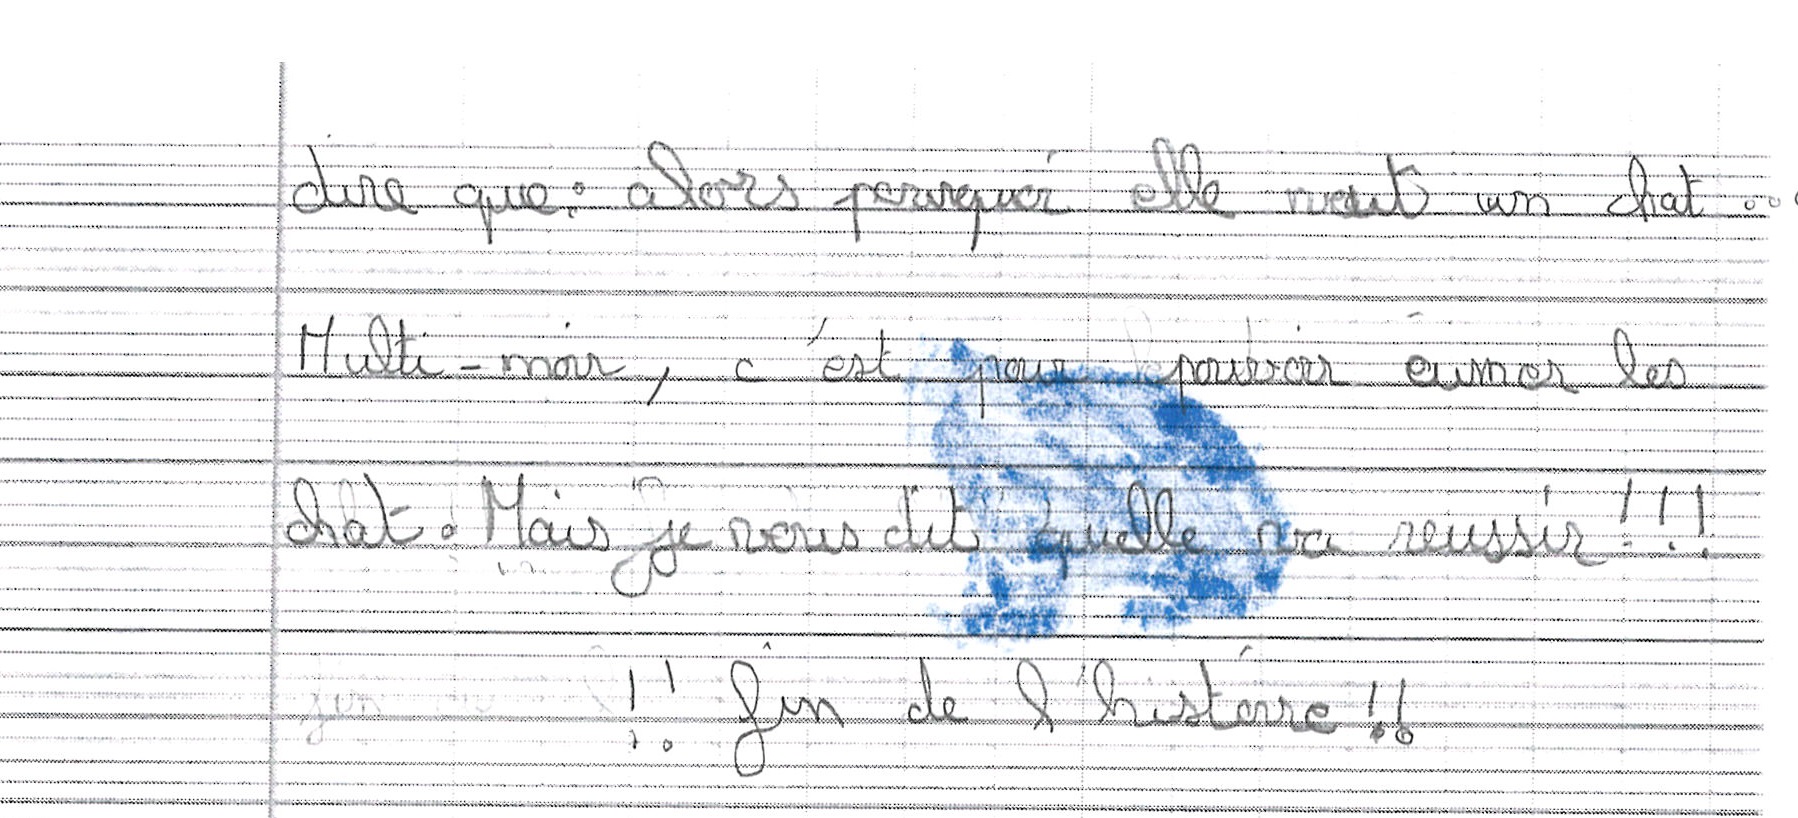 dire que : alors pourquoi elle veut un chat ...
Multi-noir, c'est pour pouvoir les
chat. Mais je vous dit quelle va reussir !!!
!! fin de l'histoire !!